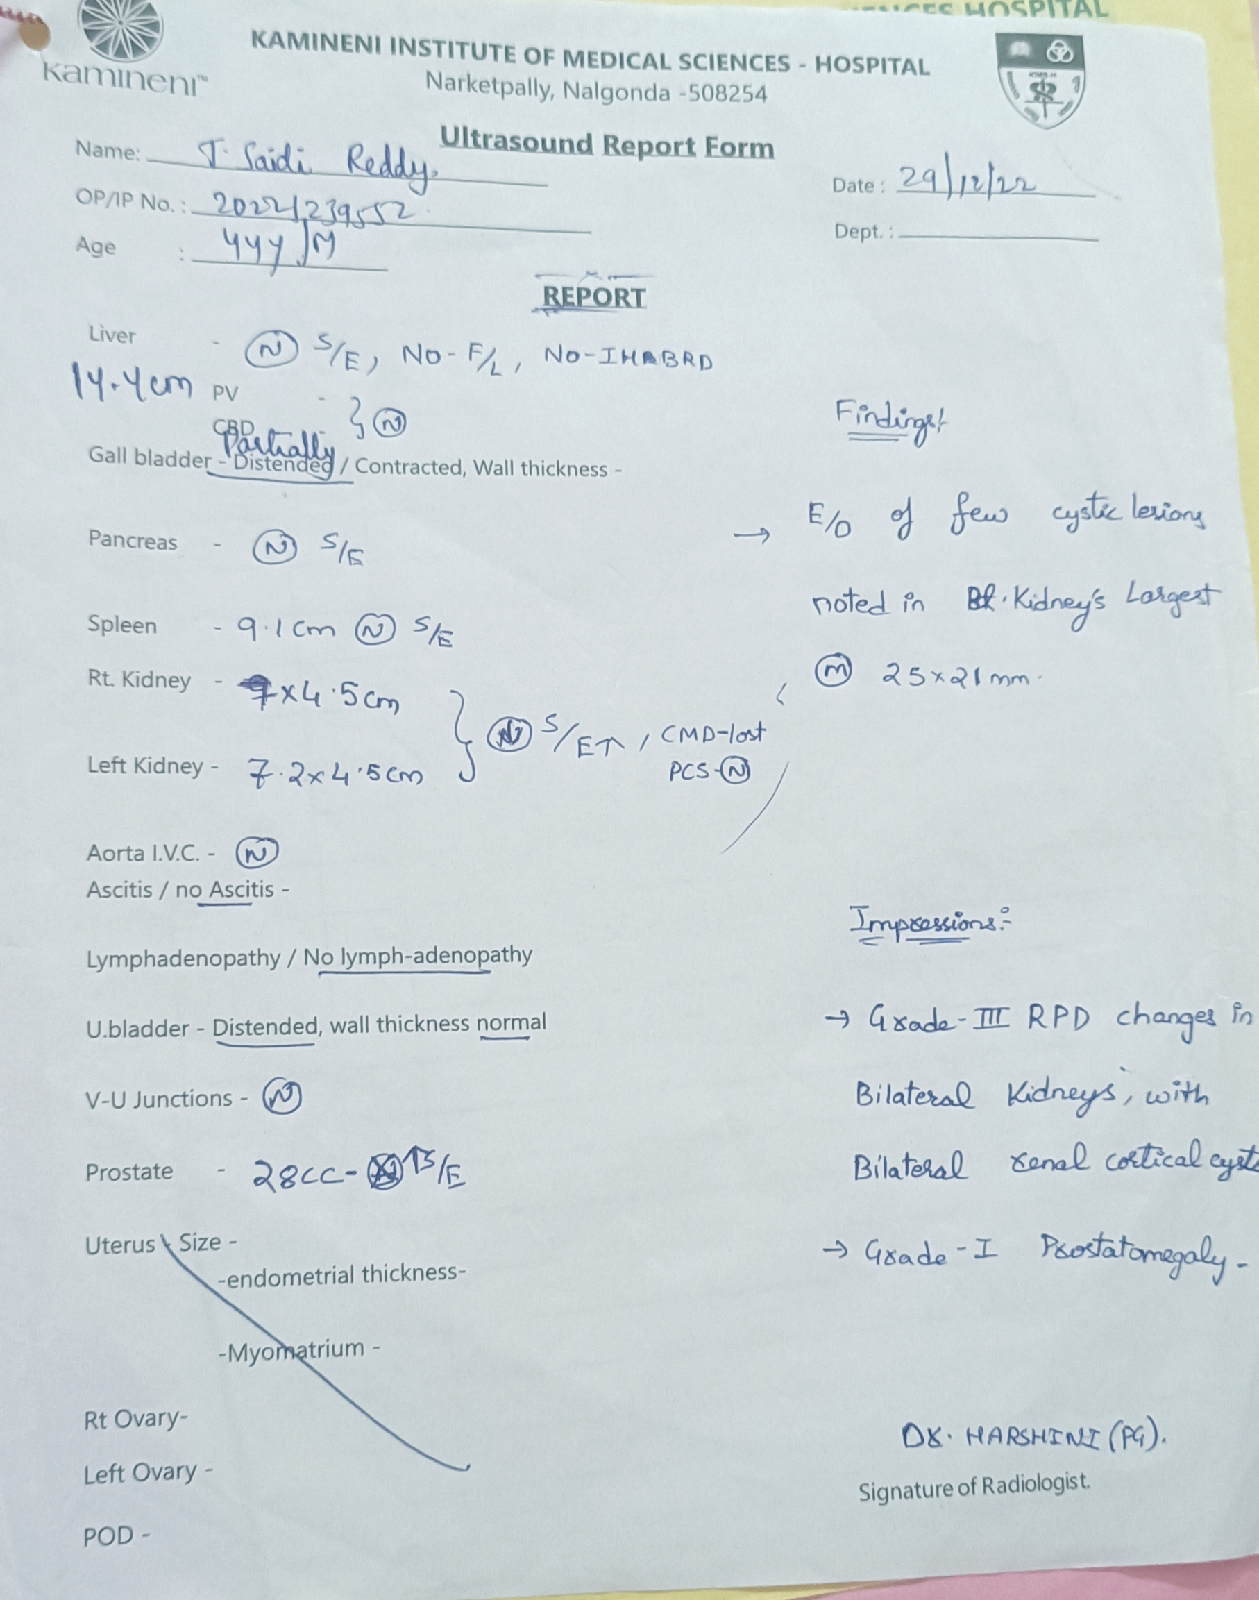 ENCES HOSPITAL
Kamineni™
KAMINENI INSTITUTE OF MEDICAL SCIENCES - HOSPITAL
Narketpally, Nalgonda -508254
Ultrasound Report Form
Name: T. Saidi Reddy.
Date : 29/12/22
OP/IP No. : 2022/239552
Dept. :
Age : 44y/M
REPORT
Liver - N S/E, NO-F/L, NO-IHABRD
14.4cm PV -
CBD } N
Partially
Gall bladder - Distended / Contracted, Wall thickness -
Pancreas - N S/E
Spleen - 9.1cm N S/E
Rt. Kidney - 7x4.5cm
} N S/E↑, CMD-lost
PCS-N
Left Kidney - 7.2x4.5cm
Aorta I.V.C. - N
Ascitis / no Ascitis -
Lymphadenopathy / No lymph-adenopathy
U.bladder - Distended, wall thickness normal
V-U Junctions - N
Prostate - 28cc- ↑S/E
Uterus Size -
-endometrial thickness-
-Myomatrium -
Rt Ovary-
Left Ovary -
POD -
Findings:
→ E/O of few cystic lesions
noted in B/L. Kidney's Largest
M 25x21mm.
Impressions:-
→ Grade-III RPD changes in
Bilateral Kidneys, with
Bilateral renal cortical cysts
→ Grade-I Prostatomegaly-
DR. HARSHINI (PG).
Signature of Radiologist.